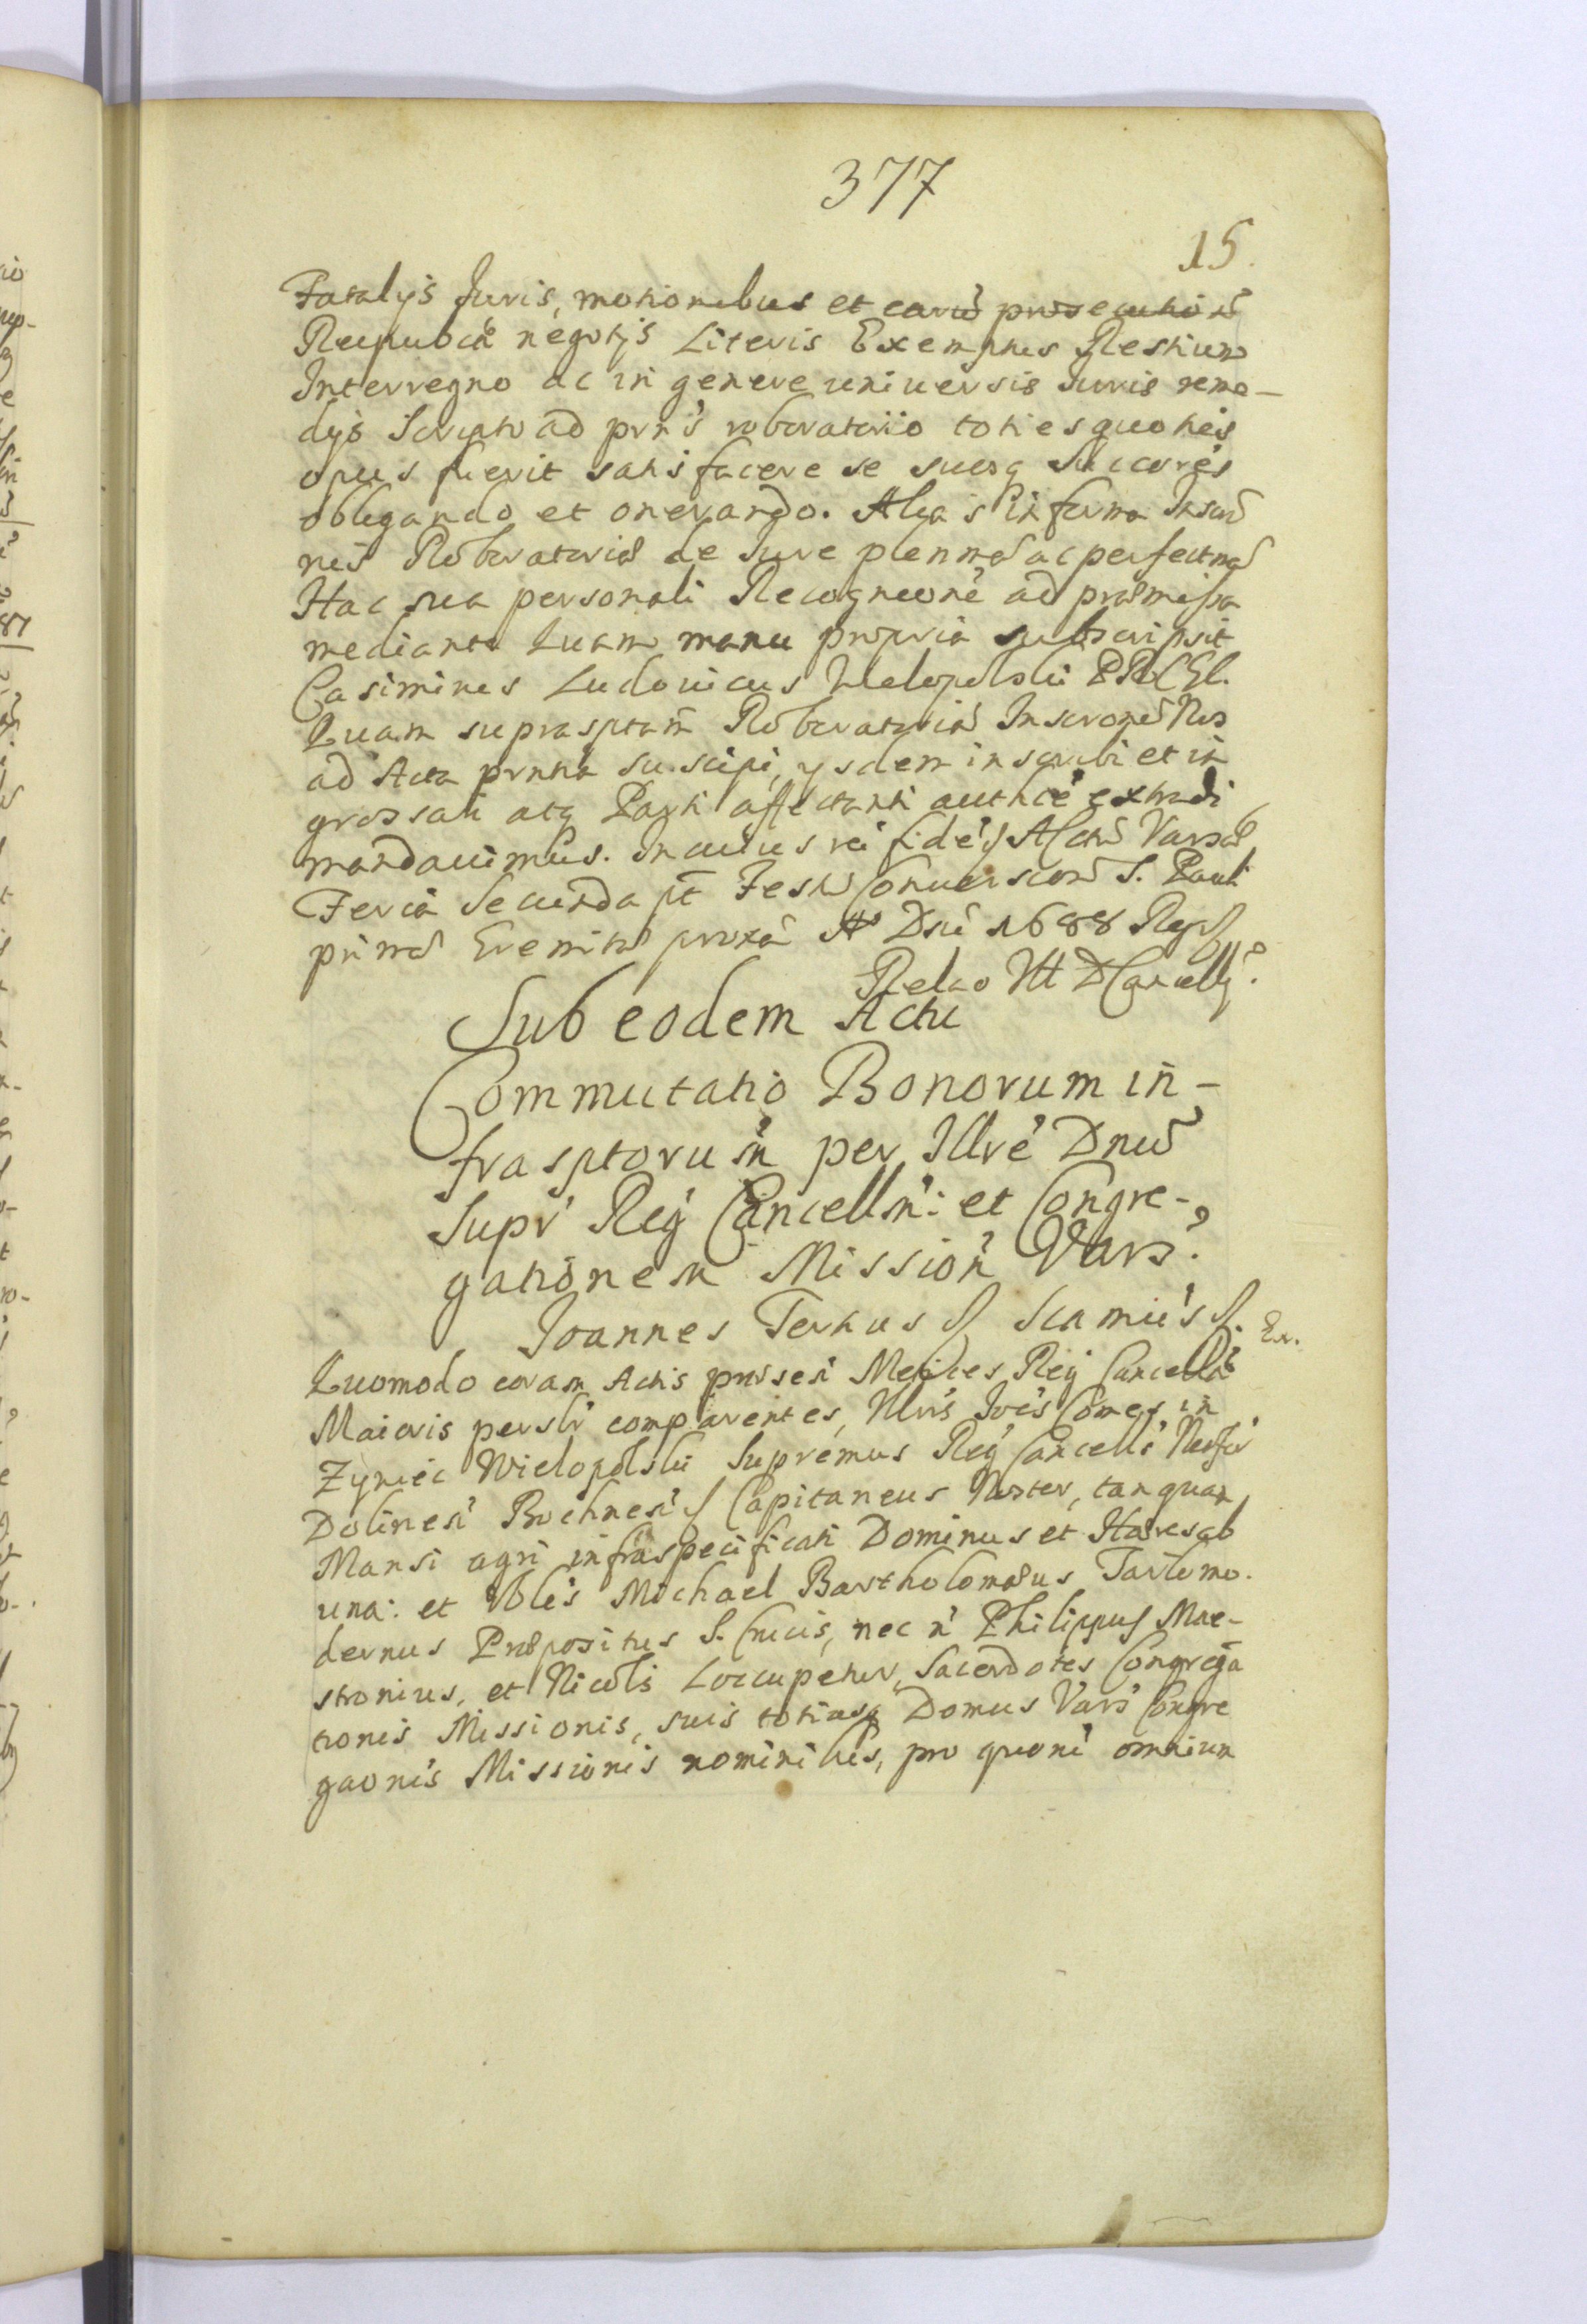 377
15.
Fatalijs Juris, motionibus et earũ prosecutionẽ
Reipublcã negotijs Literis Exemptus Restium
Interregno ac in genere universis Juris reme-
dijs Scripto ad prñs roboratorio toties quoties
opus fuerit satisfacere se suosq Succores
obligando et onerando. in forma
Roboratoria de Jure plenma ac perfectma
Hac sua personali Recogneone ad præmissa
mediante Quam manu propria subscripsit
Casimirus Ludovicus Wielopolski
Quam suprasptam Roboratoriã Inscronẽ Nos
ad Acta prntia suscipi, ysdem inscribi et in
grossari atq Parti affectanti authce extradi
mandavimus. In cuius rei fide Act Vars
Feria Secunda pt Festũ Conversion S. Pauli
prima Evenit proxa Ao Dni 1688
Relao Ill D Cancellj
Sub eodem Actu
Commutatio Bonorum in-
frasptorum per Illre Dnũ
Supr Reg Cancellr: et Congre-
gationem Mission Vars.
Joannes Tertius Sciamus Ex.
Quomodo coram Actis prsse Metices Reg Cancell
Maioris persl comparentes, Illris Joes Comes in
Zyniec Wielopolski Supremus Reg Cancell
Dolinesi Bochnesi Capitaneus Noster, tanquam
Mansi agri infraspecificati Dominus et Hæres ab
una: et Vbles Michael Bartholomæus Tarlo mo.
dernus Præpositus S. Crucis, nec n Philippus Mae-
stronius, et Nicols Sacerdotes Congrega
tionis Missionis, suis totiusq Domus Vars Congre
gaonis Missionis nominibus, pro quoni omnium